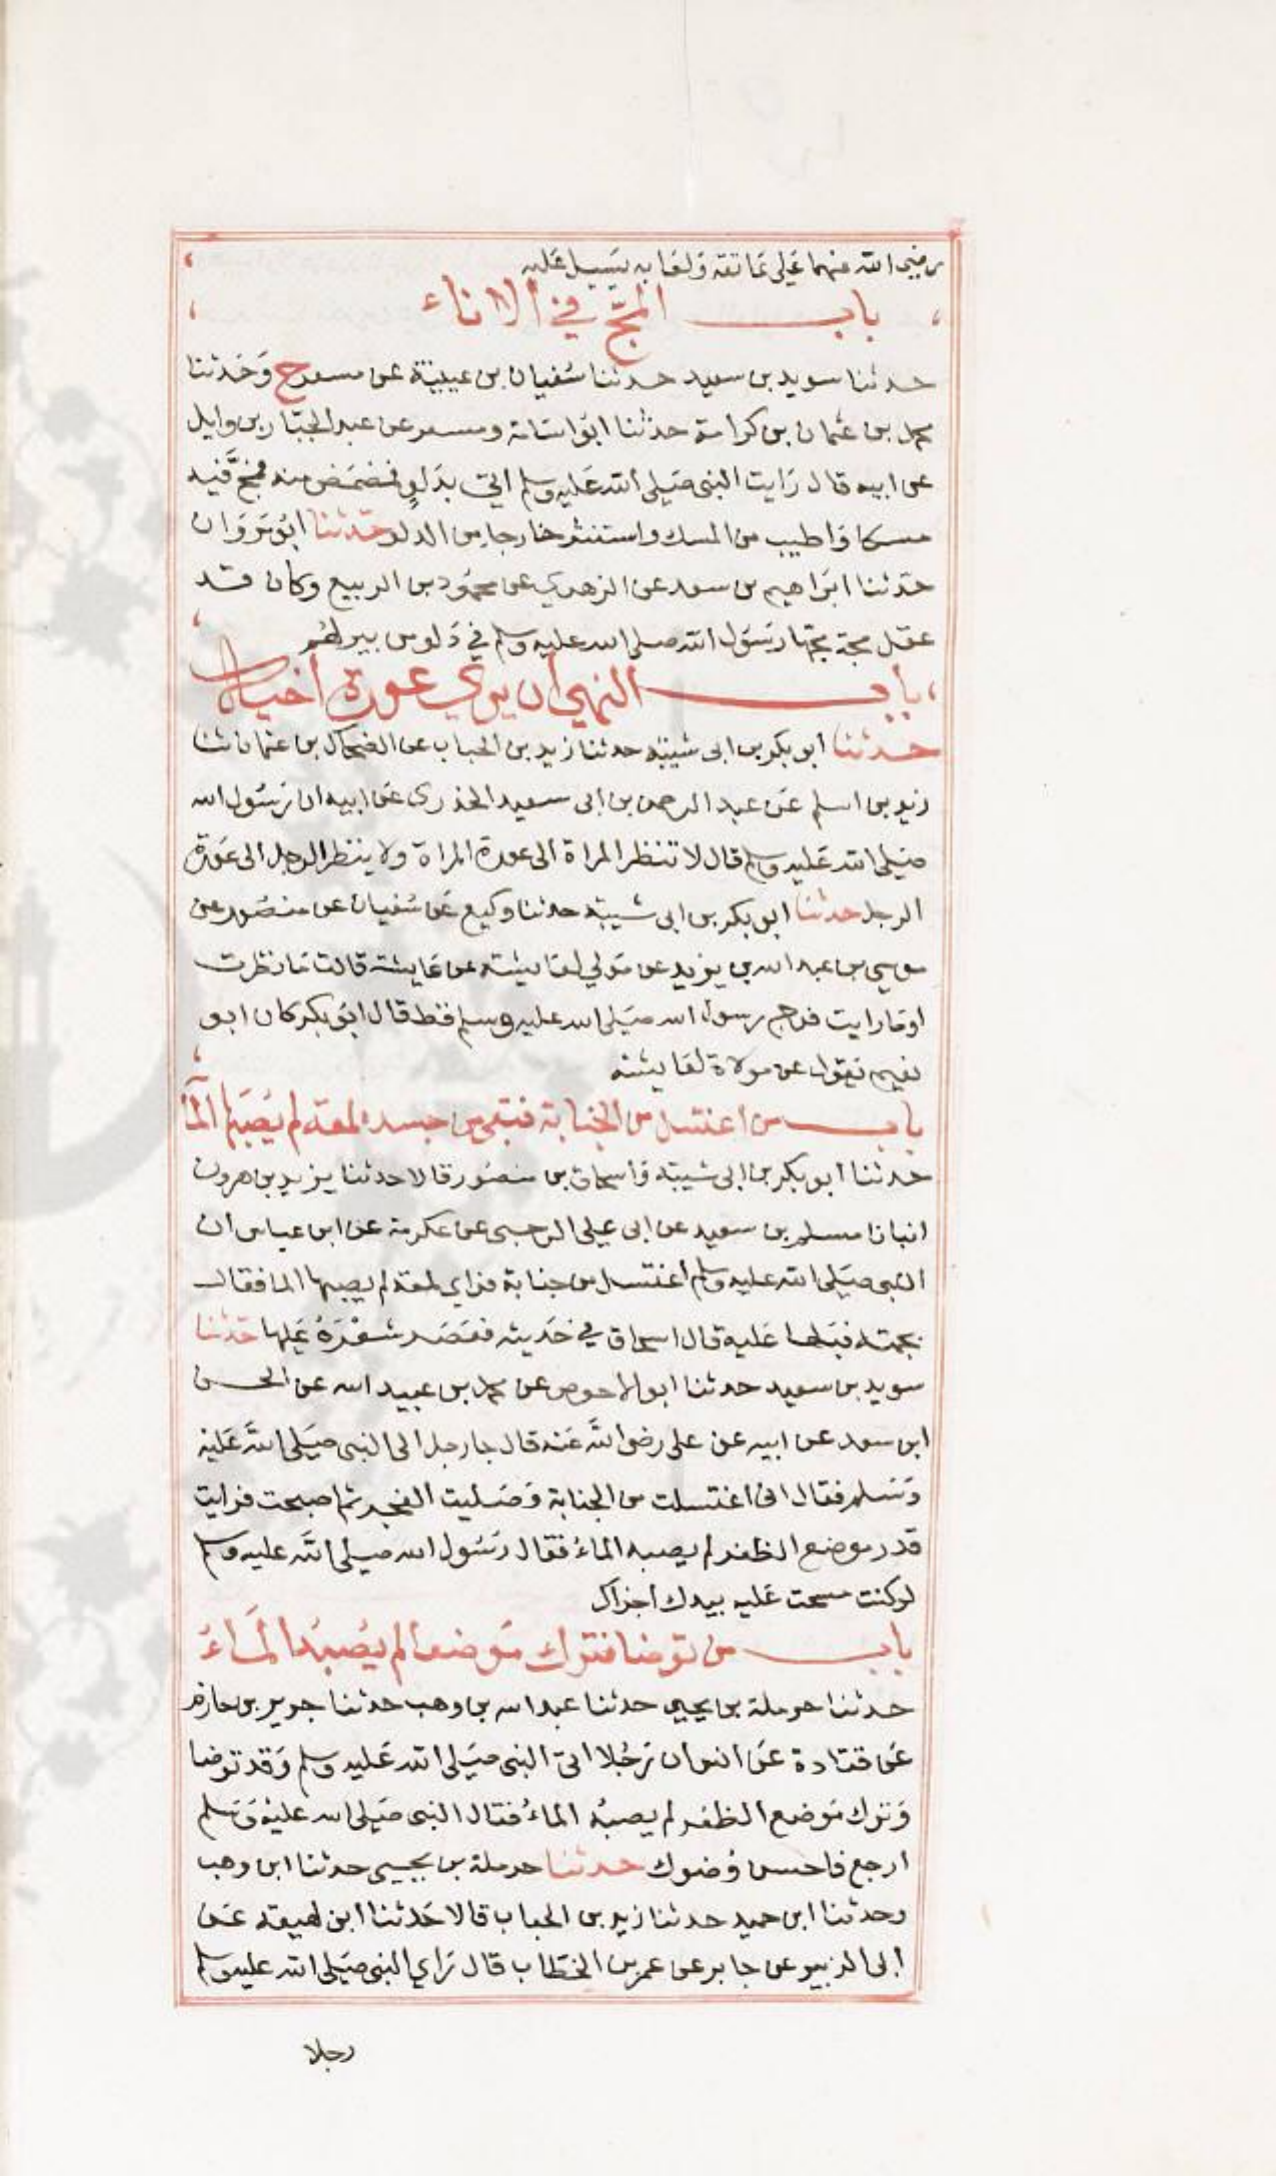 رضي الله عنهما على عاتقه ولعابه يسيل عليه
باب المج في الاناء
حدثنا سويد بن سعيد حدثنا سفيان بن عيينة عن مسعر ح وحدثنا
محمد بن عثمان بن كرامة حدثنا ابو اسامة ومسعر عن عبد الجبار بن وايل
عن ابيه قال رايت النبي صلى الله عليه وسلم اتي بدلو فمضمض منه فمج فيه
مسكا او اطيب من المسك واستنثر خارجا من الدلو حدثنا ابو مروان
حدثنا ابراهيم بن سعد عن الزهري عن محمود بن الربيع وكان قد
عقل مجة مجها رسول الله صلى الله عليه وسلم في دلو من بير لهم
باب النهي ان يرى عورة اخيه
حدثنا ابو بكر بن ابى شيبة حدثنا زيد بن الحباب عن الضحاك بن عثمان ثنا
زيد بن اسلم عن عبد الرحمن بن ابى سعيد الخدرى عن ابيه ان رسول الله
صلى الله عليه وسلم قال لا تنظر المراة الى عورة المراة ولا ينظر الرجل الى عورة
الرجل حدثنا ابو بكر بن ابى شيبة حدثنا وكيع عن سفيان عن منصور عن
موسى بن عبد الله بن يزيد عن مولى لعايشة عن عايشة قالت ما نظرت
او ما رايت فرج رسول الله صلى الله عليه وسلم قط قال ابو بكر كان ابو
نعيم يقول عن مولاة لعايشة
باب من اغتسل من الجنابة فبقي من جسده لمعة لم يصبها الماء
حدثنا ابو بكر بن ابى شيبة واسحاق بن منصور قالا حدثنا يزيد بن هرون
انبانا مسلم بن سعيد عن ابى على الرحبى عن عكرمة عن ابن عباس ان
النبى صلى الله عليه وسلم اغتسل من جنابة فراى لمعة لم يصبها الما فقال
بجمته فبلها عليه قال اسحاق في حديثه فعصر شعره عليها حدثنا
سويد بن سعيد حدثنا ابو الاحوص عن محمد بن عبيد الله عن الحسن
ابن سعد عن ابيه عن على رضى الله عنه قال جا رجل الى النبى صلى الله عليه
وسلم فقال انى اغتسلت من الجنابة وصليت الفجر ثم اصبحت فرايت
قدر موضع الظفر لم يصبه الماء فقال رسول الله صلى الله عليه وسلم
لو كنت مسحت عليه بيدك اجزاك
باب من توضا فترك موضعا لم يصبه الماء
حدثنا حرملة بن يحيى حدثنا عبد الله بن وهب حدثنا جرير بن حازم
عن قتادة عن انس ان رجلا اتى النبى صلى الله عليه وسلم وقد توضا
وترك موضع الظفر لم يصبه الماء فقال النبى صلى الله عليه وسلم
ارجع فاحسن وضوك حدثنا حرملة بن يحيى حدثنا ابن وهب
وحدثنا ابن حميد حدثنا زيد بن الحباب قالا حدثنا ابن لهيعة عن
ابى الزبير عن جابر عن عمر بن الخطاب قال راى النبى صلى الله عليه وسلم
رجلا